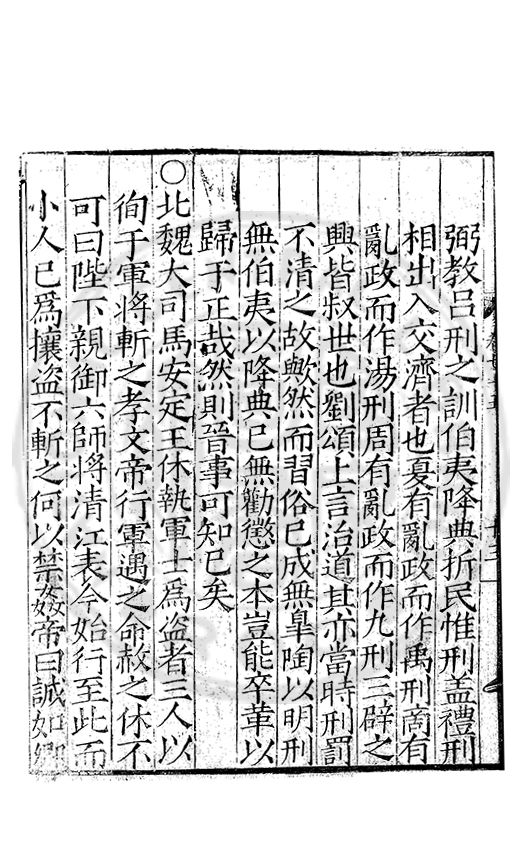 弼教吕刑之訓伯夷降典折民惟刑盖禮刑
相出入交濟者也夏有亂政而作禹刑商有
亂政而作湯刑周有亂政而作九刑三辟之
興皆叔世也劉頌上言治道其亦當時刑罰
不清之故歟然而習俗已成無臯陶以明刑
無伯夷以降典已無勸懲之本豈能卒革以
歸于正哉然則晉事可知已矣
○北魏大司馬安定王休執軍士為盗者三人以
徇于軍將斬之孝文帝行軍遇之命赦之休不
可曰陛下親御六師將清江表今始行至此而
小人已為攘盗不斬之何以禁姦帝曰誠如卿